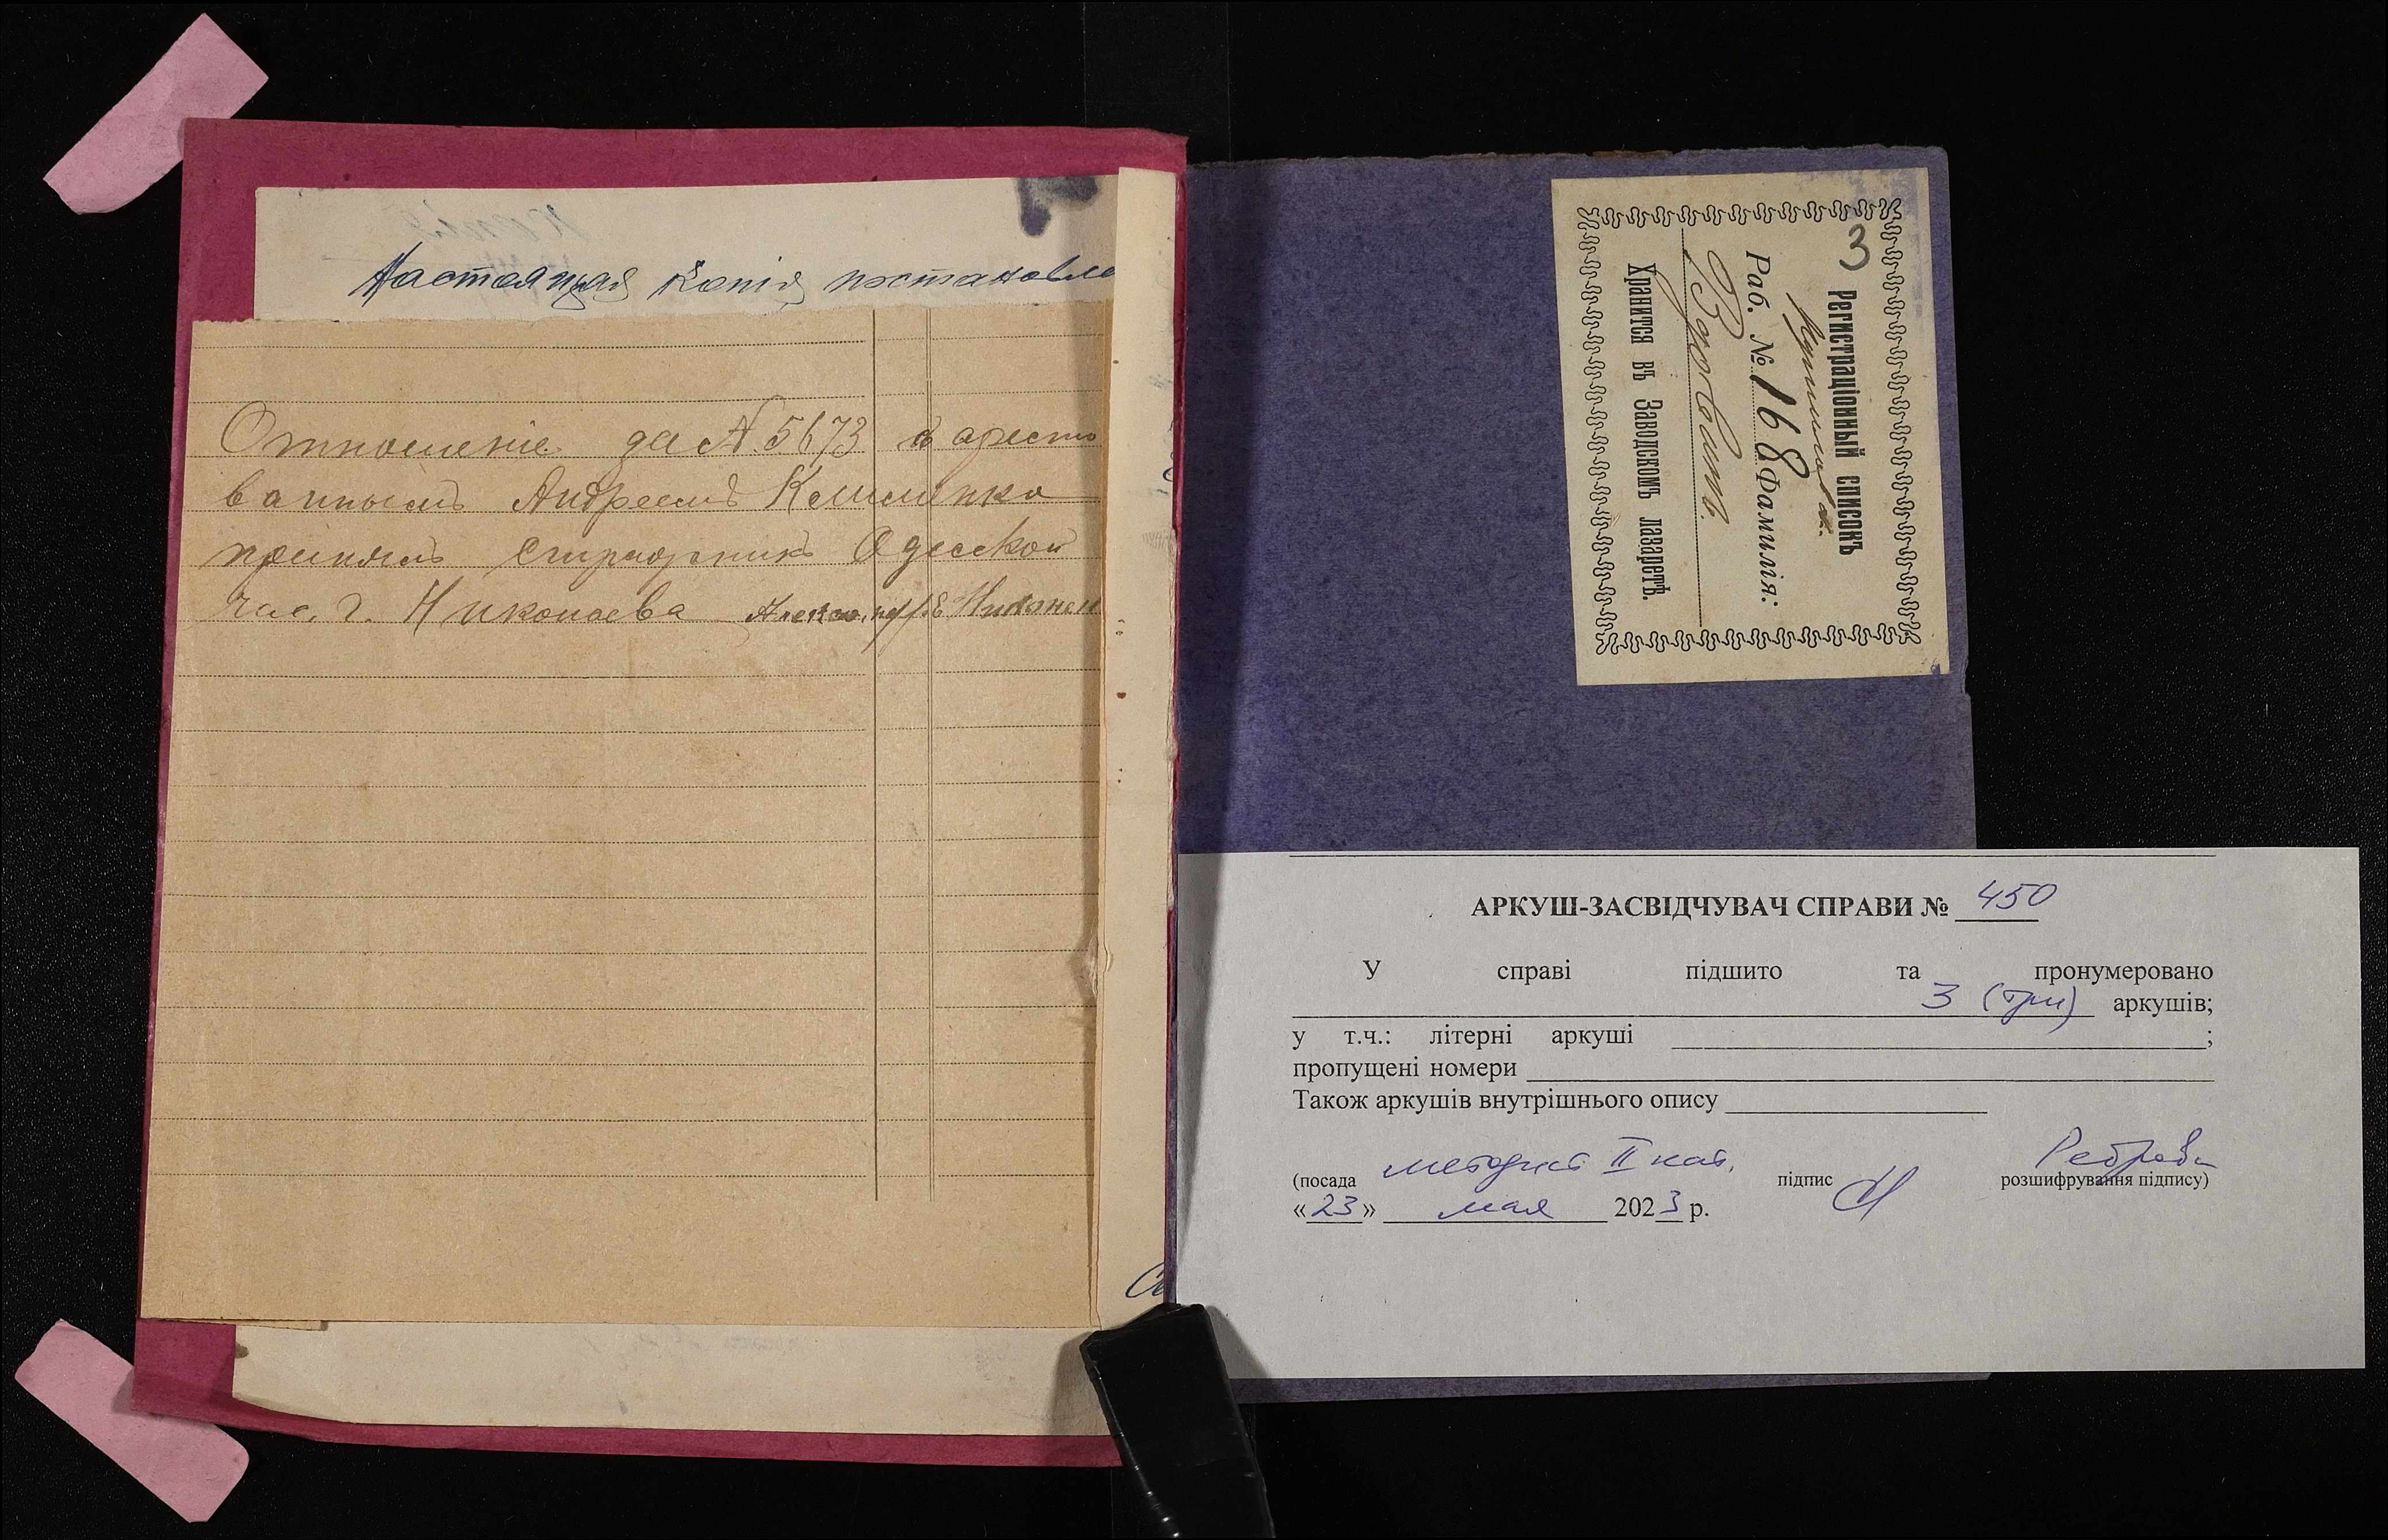 Настоящая копія постановле
Отношеніе за № 5673 с аресто
ваннымъ Андреемъ Клименко
принялъ стражникъ Одесской
час. г. Николаева
3
Регистраціонный списокъ
Раб. № 168 Фамилія:
Вдовинъ.
Хранится въ Заводскомъ лазаретѣ.
АРКУШ-ЗАСВІДЧУВАЧ СПРАВИ № 450
У справі підшито та пронумеровано
3 (три) аркушів;
у т.ч.: літерні аркуші ;
пропущені номери
Також аркушів внутрішнього опису
методист II кат.
(посада підпис розшифрування підпису)
«23» мая 2023 р.